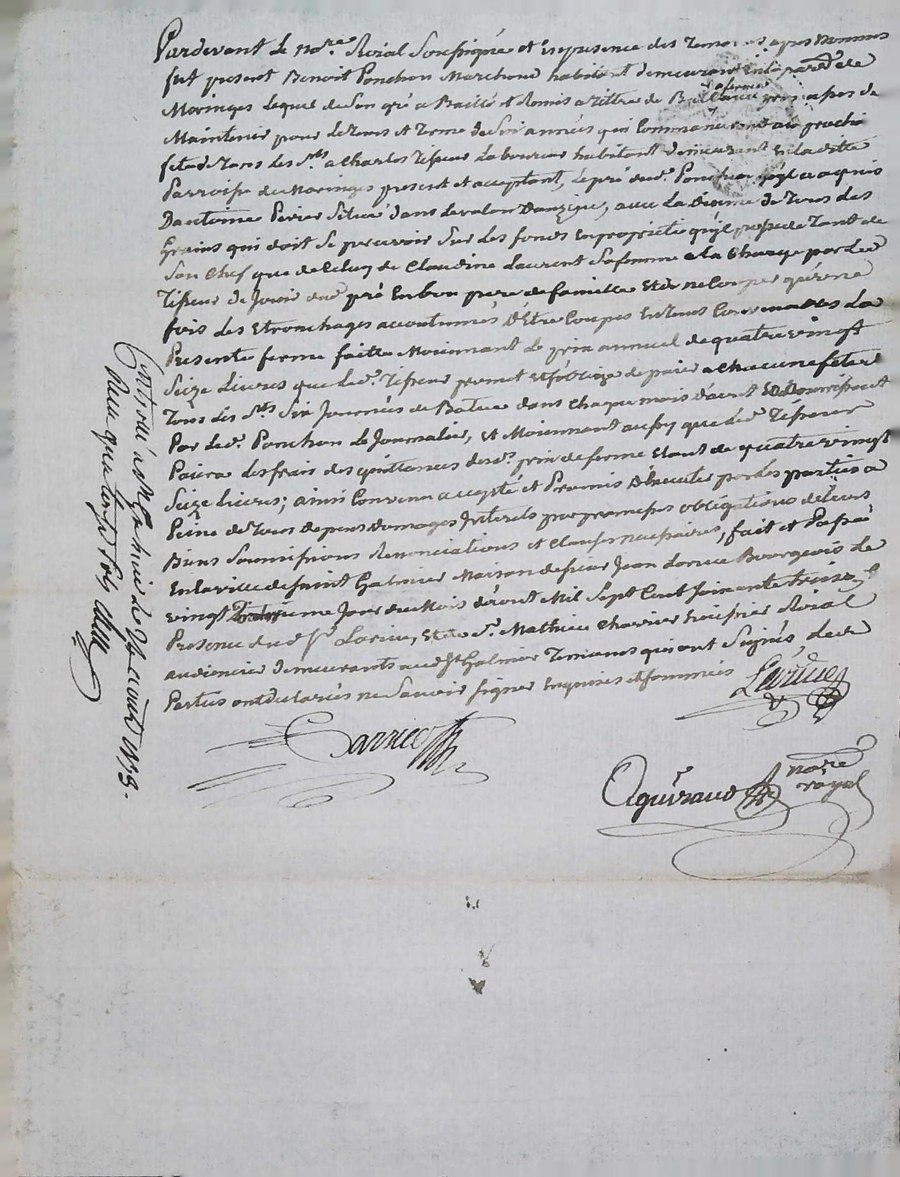 Pardevant le no.re Roial Soussigné et en presence des Temoins apres nommés
fut present Benoit Ponchon Marchand habitant demeurant en la par.d de
Maringes lequel de son gré a Baillé et Remis a titre de Bail a ferme
Maintenir pour le tems et terme de Six années qui Commenceront au prochain
fete de Tous les S.ts a Charles Tisseur Laboureur habitant demeurant en la ditte
Parroisse de Maringes present et acceptant, le pré dud. Ponchon quil a aquis
Dantoine Perier Situé dans le valon Dauzieu, avec la dixme de Tous les
Grains qui doit se percevoir Sur les fonds en proprieté quil possede Tant de
Son Chef que de Celuy de Claudine Laurent Safemme a la Charge par led.
Tisseur de Jouir dud. pré en bon pere de famille et de ne Couper quune
fois les Etronchages accoutumés Detre Coupés en tems Convenables La
Presente ferme faitte Moienant le prix annuel de quatre vingt
Seize Livres que led. Tisseur promet et soblige de paier a Chacune fete de
Tous les S.ts Six Journées de Batue dans Chaque mois daout
Par led. Ponchon le Journalier, et Moiennant aussy que led. Tisseur
Paiera les frais des quittances desd. prix de ferme Etant de quatre vingt
Seize Livres; ainsi Convenu accepté et Promis Dexecuter par les parties a
Peine de Tous depens domages Interets par promesses obligations de leurs
Biens Soumissions Renonciations et Clauses necessaires, fait et Passé
En la ville de Saint Galmier Maison de sieur Jean Larue Bourgeois le
vingt Jour du Mois daout Mil Sept Cent Soixante treize, En
Presence dud. S.r Larue, et de S.r Mathieu Charrier huissier Roial
audiencier demeurants aud. St Galmier Temoins qui ont Signés, Lesd.
Parties ont declarés ne Savoir signer Enquises et sommées
Larue
Aguiraud no.re royal
Controlé a St Galmier le 24 aout 1773.
Reçu quatorze sols